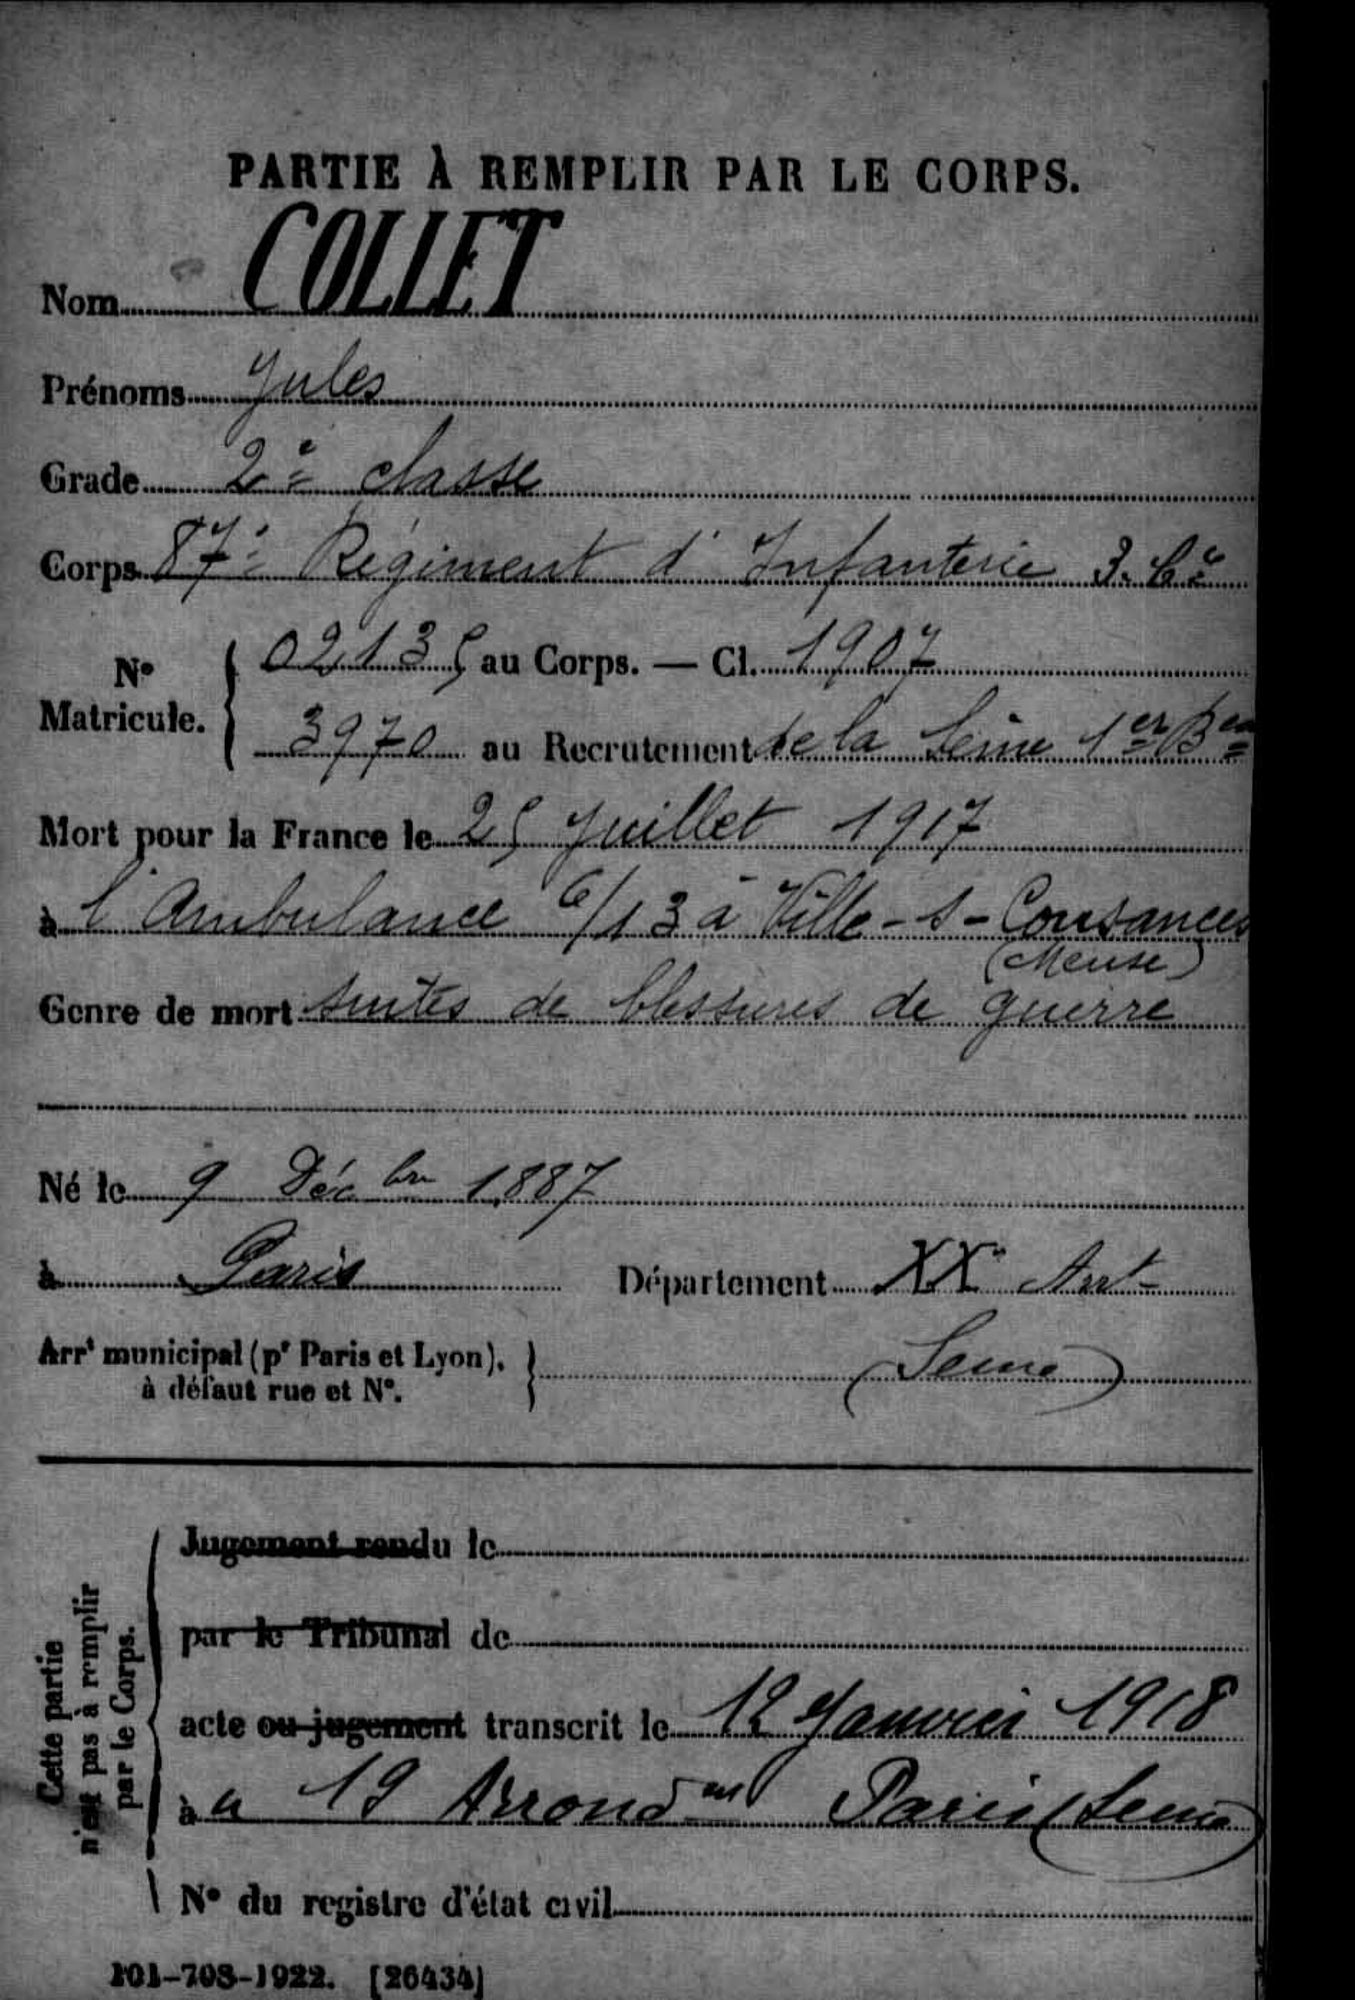 PARTIE À REMPLIR PAR LE CORPS.
Nom COLLET
Prénoms Jules
Grade 2e classe
Corps 87e Régiment d'Infanterie 3. Cie
No Matricule. { 02135 au Corps. — Cl. 1907
3970 au Recrutement de la Seine 1er Bau
Mort pour la France le 25 Juillet 1917
à l'Ambulance 6/13 à Ville-s-Cousances
(Meuse)
Genre de mort suites de blessures de guerre
Né le 9 Déc bre 1887
à Paris Département XXe Arrt
Arrt municipal (pr Paris et Lyon), } (Seine)
à défaut rue et No.
Cette partie
n'est pas à remplir
par le Corps.
Jugement rendu le
par le Tribunal de
acte ou jugement transcrit le 12 Janvier 1918
à a 19 Arrondent Paris (Seine)
No du registre d'état civil
101-708-1922. [26434]